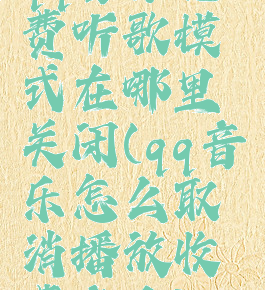 费听歌模
式在哪里
关闭(qq音
乐怎么取
消播放收